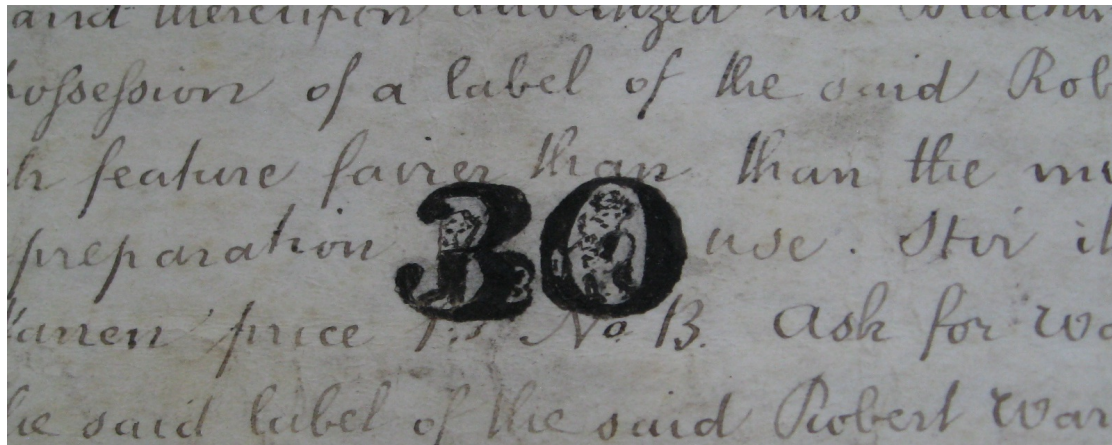 and thereupon his
possession of a label of the said Rob
h feature fairer than than the mi
preparation 30 use. Stir it
price No B. Ask for wa
he said label of the said Robert War